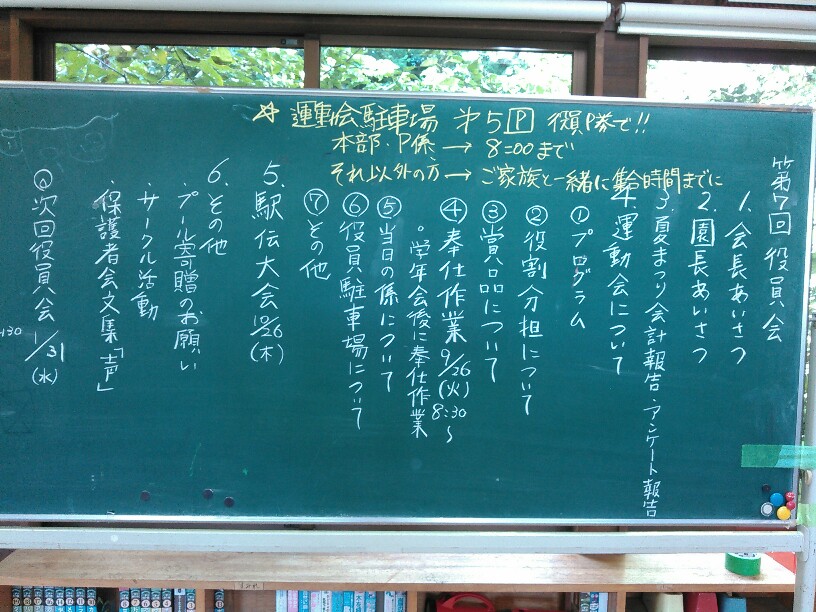 ☆ 運動会駐車場 第5P 役員P券で!!
本部・P係 → 8:00まで
それ以外の方 → ご家族と一緒に集合時間までに
第7回 役員会
1、会長あいさつ
2、園長あいさつ
3、夏まつり会計報告・アンケート報告
4、運動会について
①プログラム
②役割分担について
③賞品について
④奉仕作業 9/26(火) 8:30~
。学年会後に奉仕作業
⑤当日の係について
⑥役員駐車場について
⑦その他
5、駅伝大会 10/26(木)
6、その他
・プール寄贈のお願い
・サークル活動
・保護者会文集「声」
◎次回役員会 1/31(水)